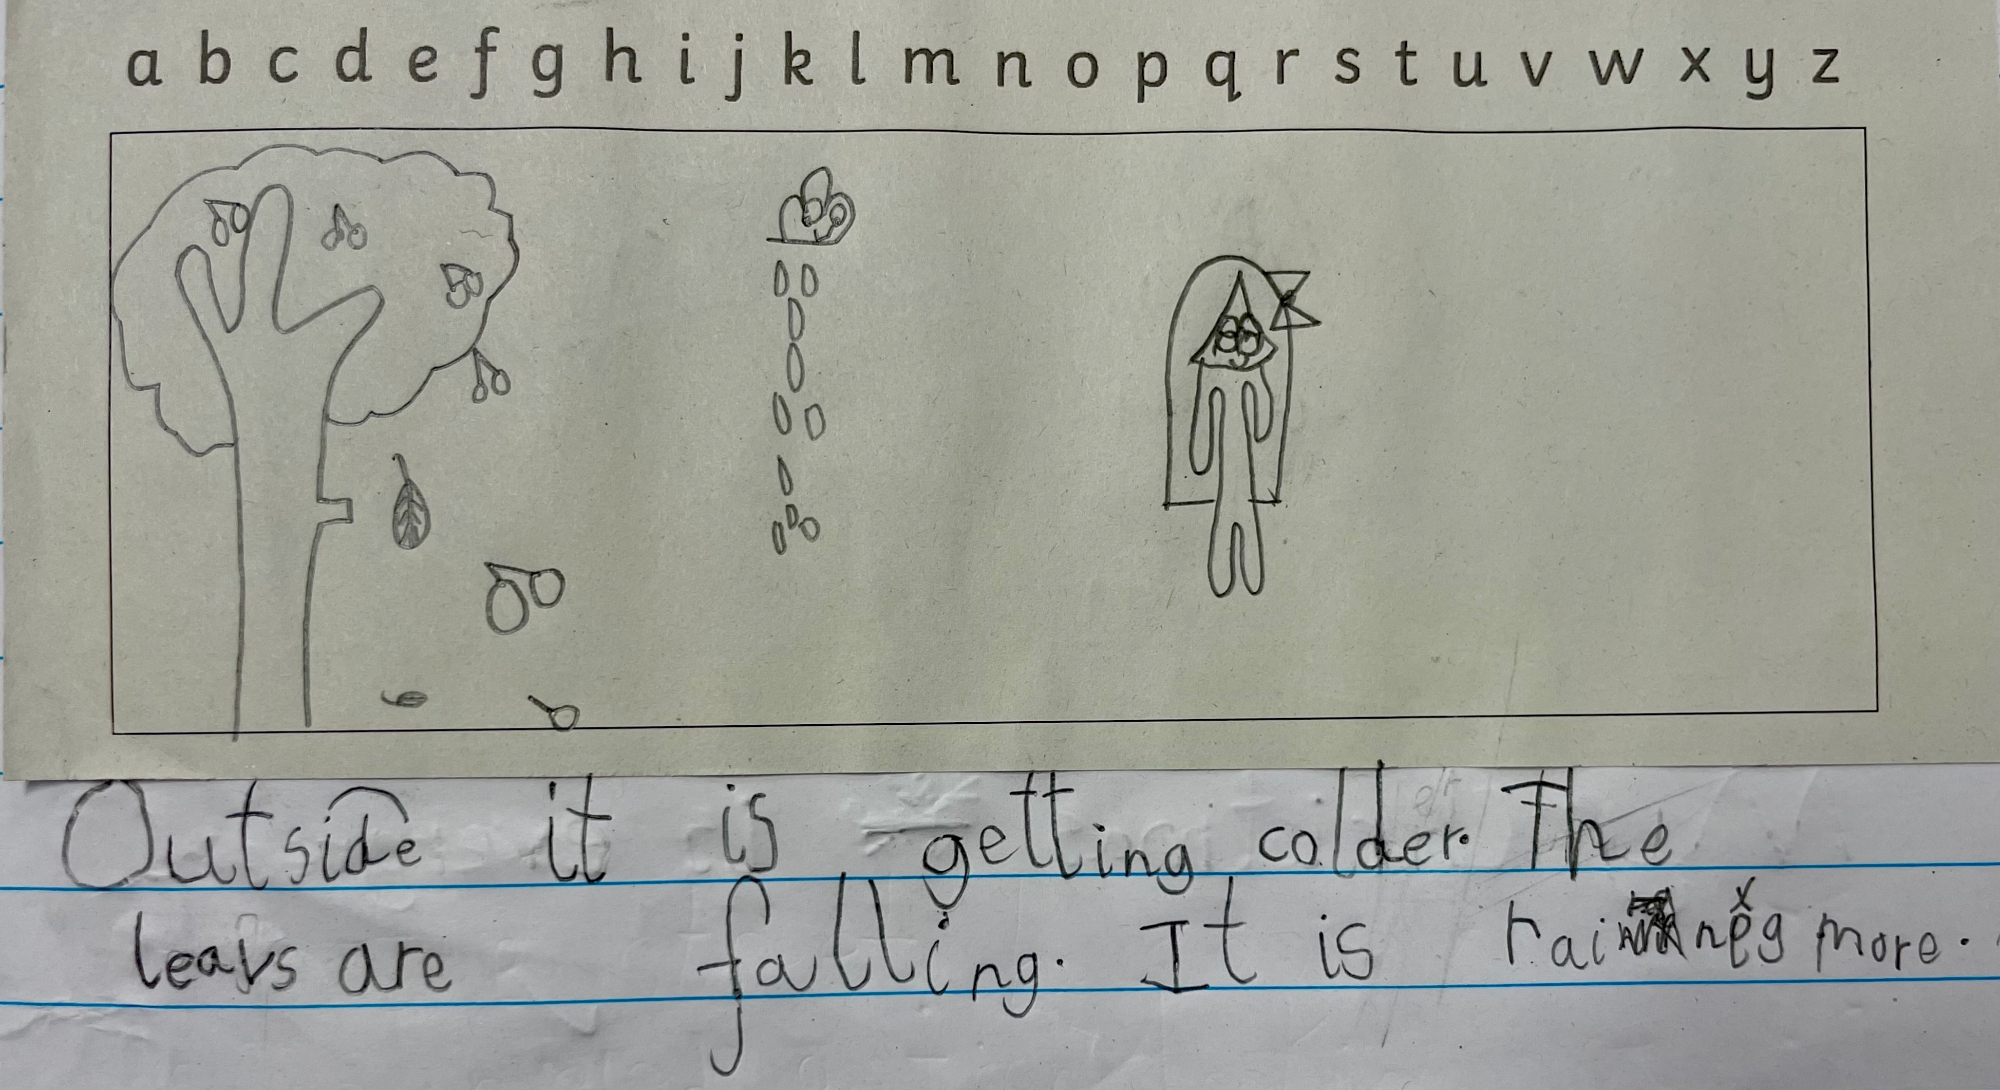 a b c d e f g h i j k l m n o p q r s t u v w x y z
Outside it is getting colder. The
leavs are falling. It is raineg more.